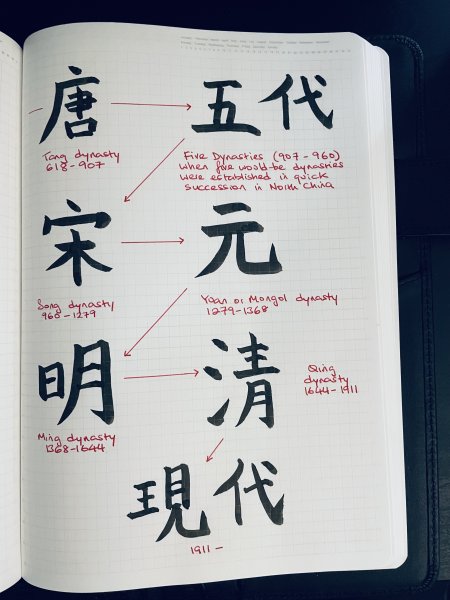 唐
五代
Tang dynasty
618-907
Five Dynasties (907-960)
when five would-be dynasties
were established in quick
succession in North China
宋
元
Song dynasty
960-1279
Yuan or Mongol dynasty
1279-1368
明
清
Qing
dynasty
1644-1911
Ming dynasty
1368-1644
現代
1911-